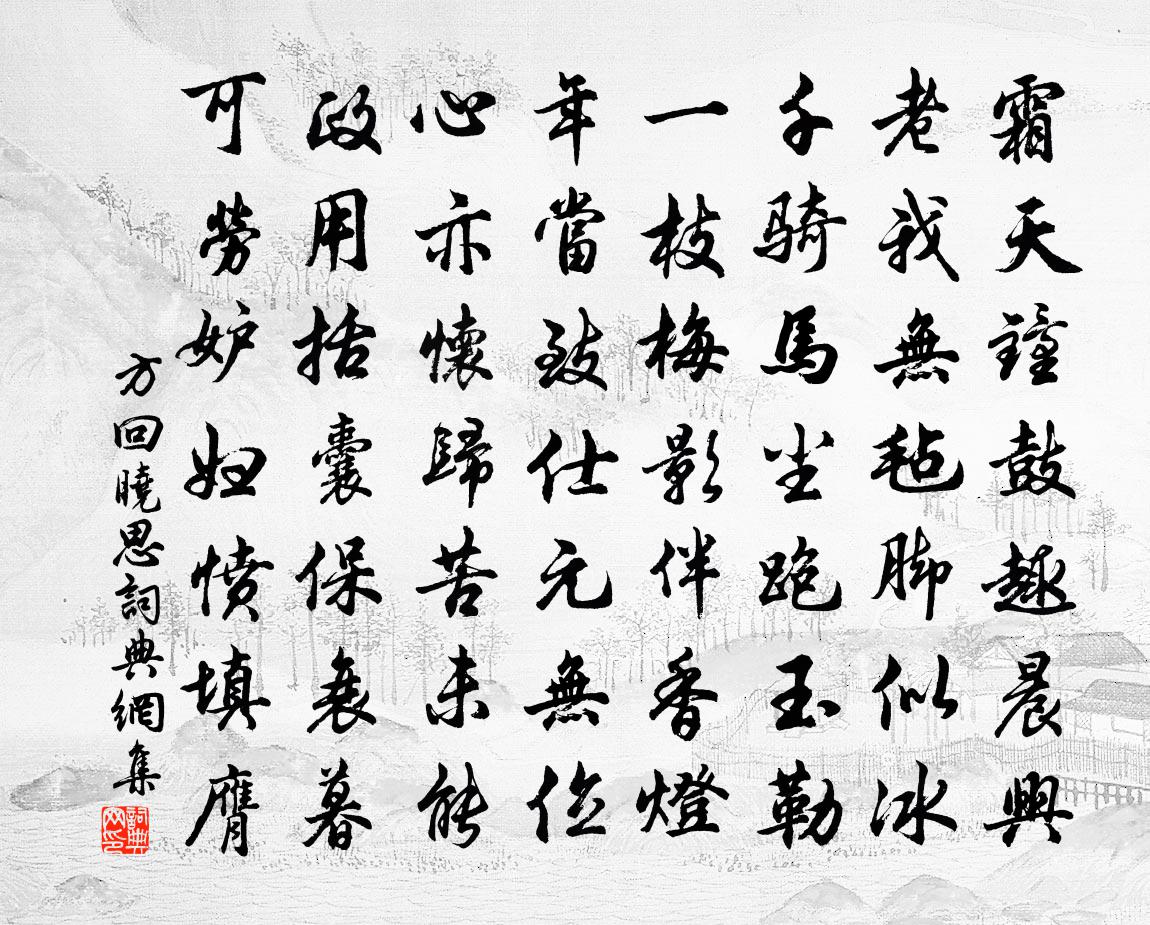 霜天鐘鼓趣晨興
老我無毡脚似冰
千騎馬尘跑玉勒
一枝梅影伴香燈
年當致仕元無位
心亦懷歸苦未能
政用括囊保衰暮
可勞妒妇憤填膺
方回曉思詞典網集
詞典网印